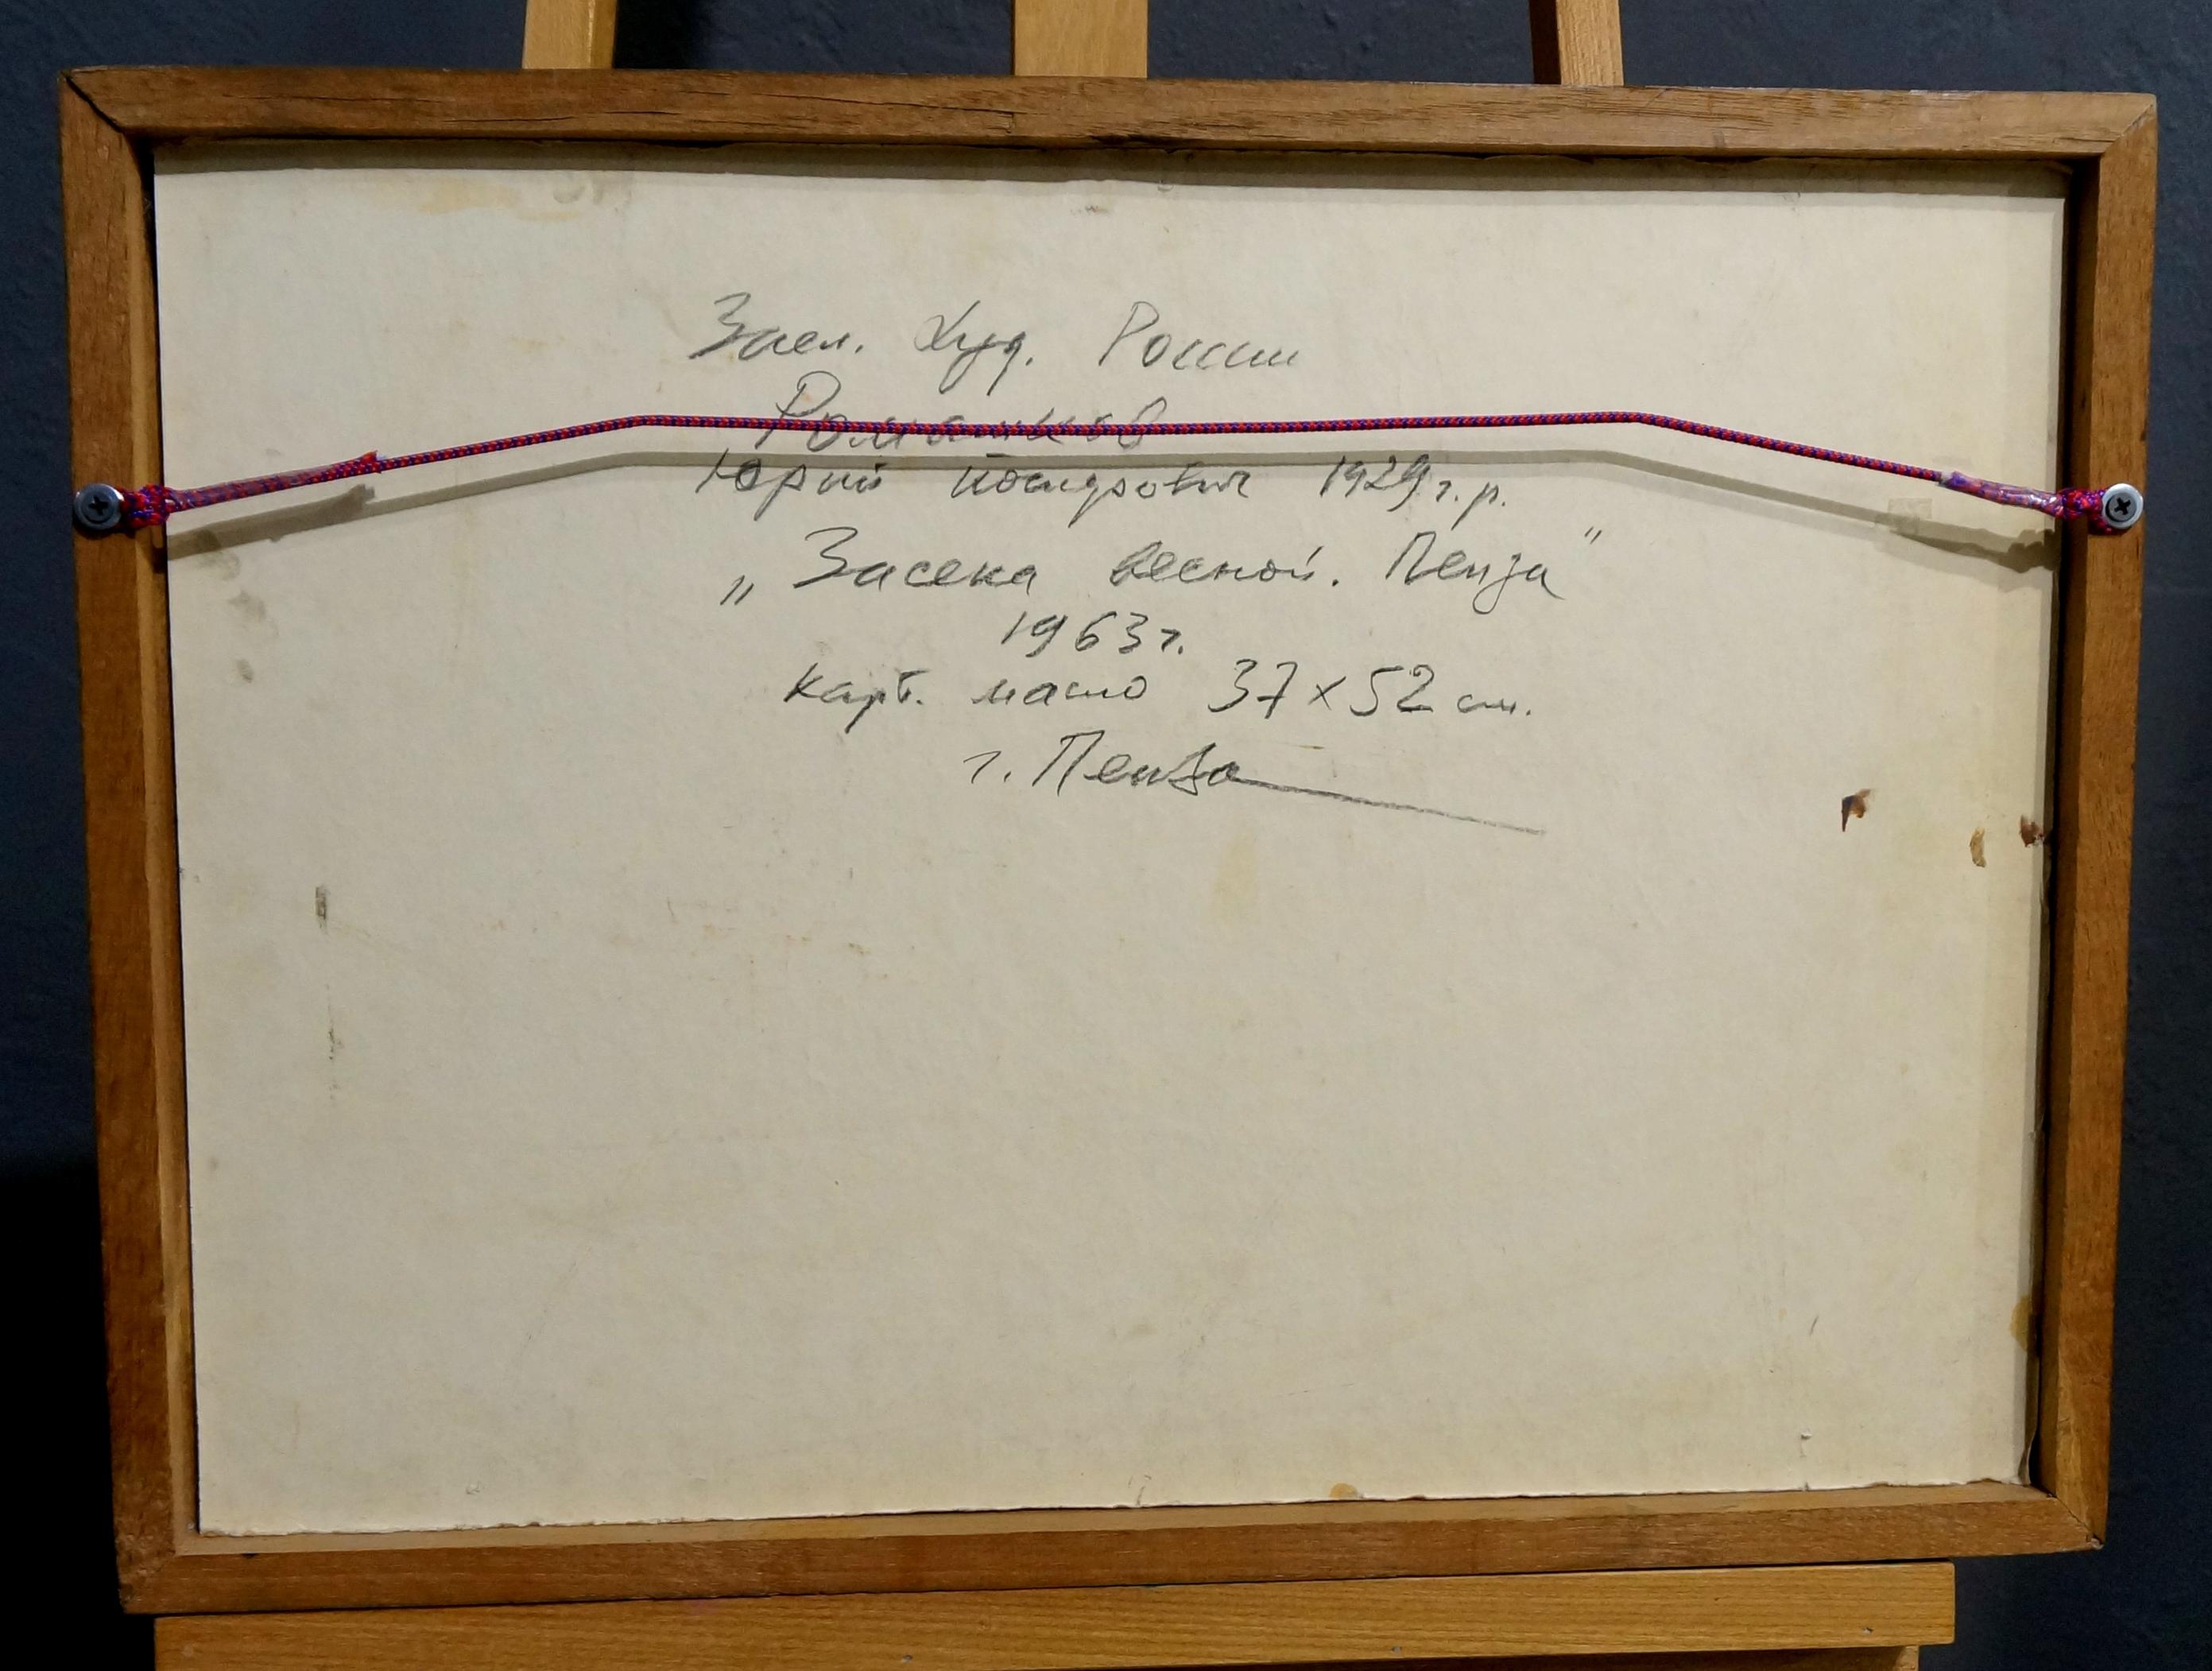 Засл. Худ. России
Ромашков
Юрий 1929 г.р.
„Засека весной. Пенза"
1963 г.
карт. масло 37 x 52 см.
г. Пенза